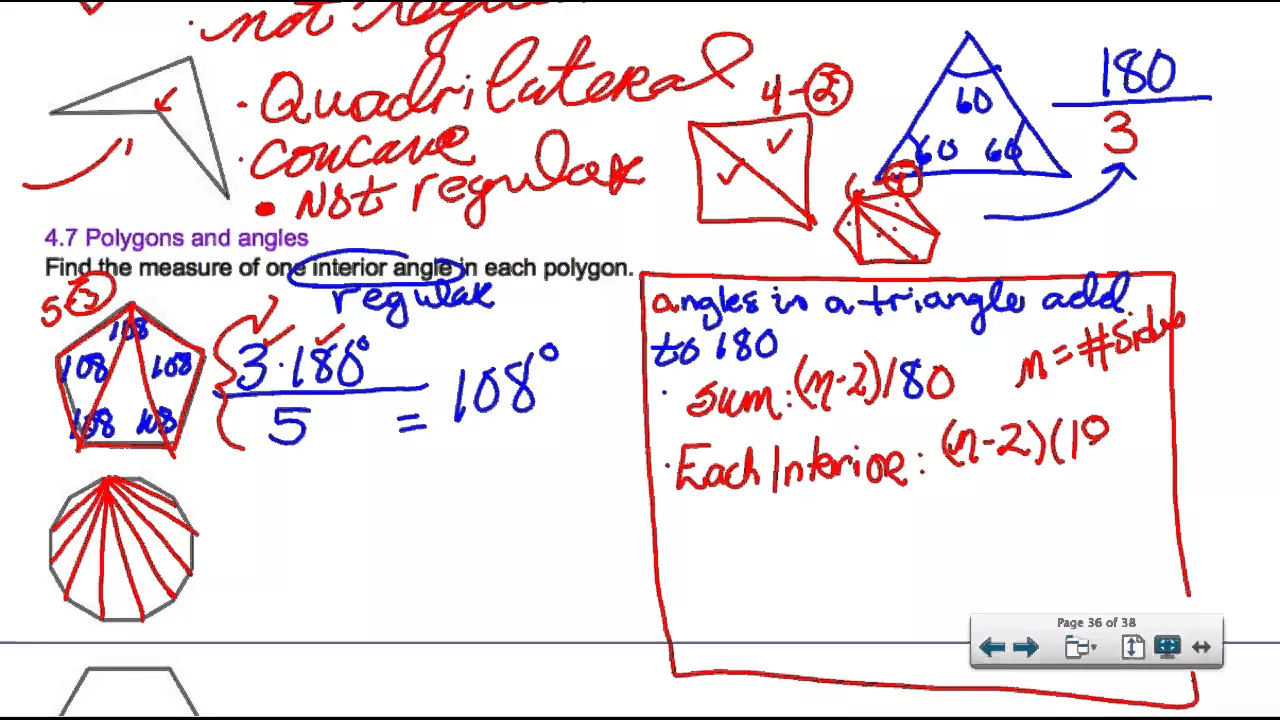 · not regular
· Quadrilateral
· concave
• Not regular
4-②
60
60 60
180
3
6-④
4.7 Polygons and angles
Find the measure of one interior angle in each polygon.
regular
5-③
108
108 108
108 108
3·180°
5
= 108°
angles in a triangle add
to 180
n = #Sides
· sum: (n-2)180
· Each Interior: (n-2)(18
Page 36 of 38